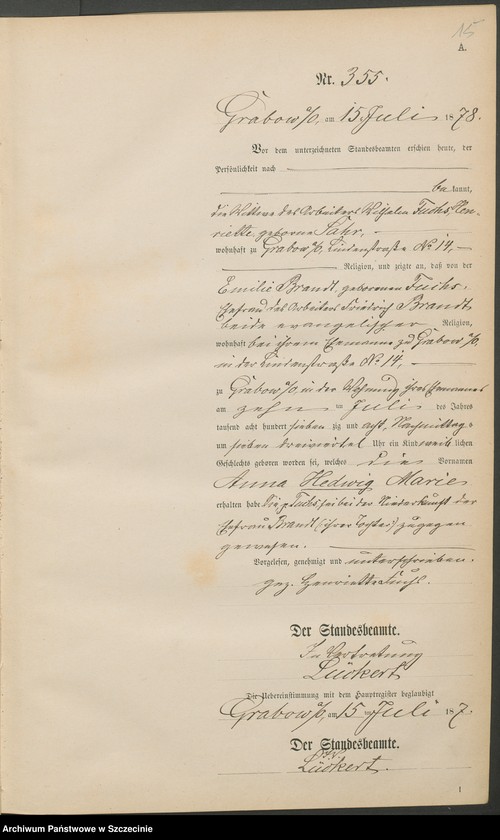 15
A.
Nr. 355.
Grabow a/O, am 15 Juli 1878.
Vor dem unterzeichneten Standesbeamten erschien heute, der
Persönlichkeit nach
be kannt,
die Wittwe des Arbeiters Wilhelm Fuchs, Hen-
riette geborne Fahr,
wohnhaft zu Grabow a/O, Lindenstraße No 14,
Religion, und zeigte an, daß von der
Emilie Brandt, geborenen Fuchs,
Ehefrau des Arbeiters Friedrich Brandt,
beide evangelischer Religion,
wohnhaft bei ihrem Ehemanne zu Grabow a/O,
in der Lindenstraße No 14,
zu Grabow a/O, in der Wohnung ihres Ehemannes
am zehn ten Juli des Jahres
tausend acht hundert sieben zig und acht, Nachmittags
um sieben dreiviertel Uhr ein Kind weib lichen
Geschlechts geboren worden sei, welches die Vornamen
Anna Hedwig Marie
erhalten habe. Die Fuchs, sei bei der Niederkunft der
Ehefrau Brandt (ihrer Tochter) zugegen
gewesen.
Vorgelesen, genehmigt und unterschrieben.
gez. Henriette Fuchs.
Der Standesbeamte.
In Vertretung
Lückert
Die Uebereinstimmung mit dem Hauptregister beglaubigt
Grabow a/O, am 15 ten Juli 187
Der Standesbeamte.
Lückert.
1
Archiwum Państwowe w Szczecinie